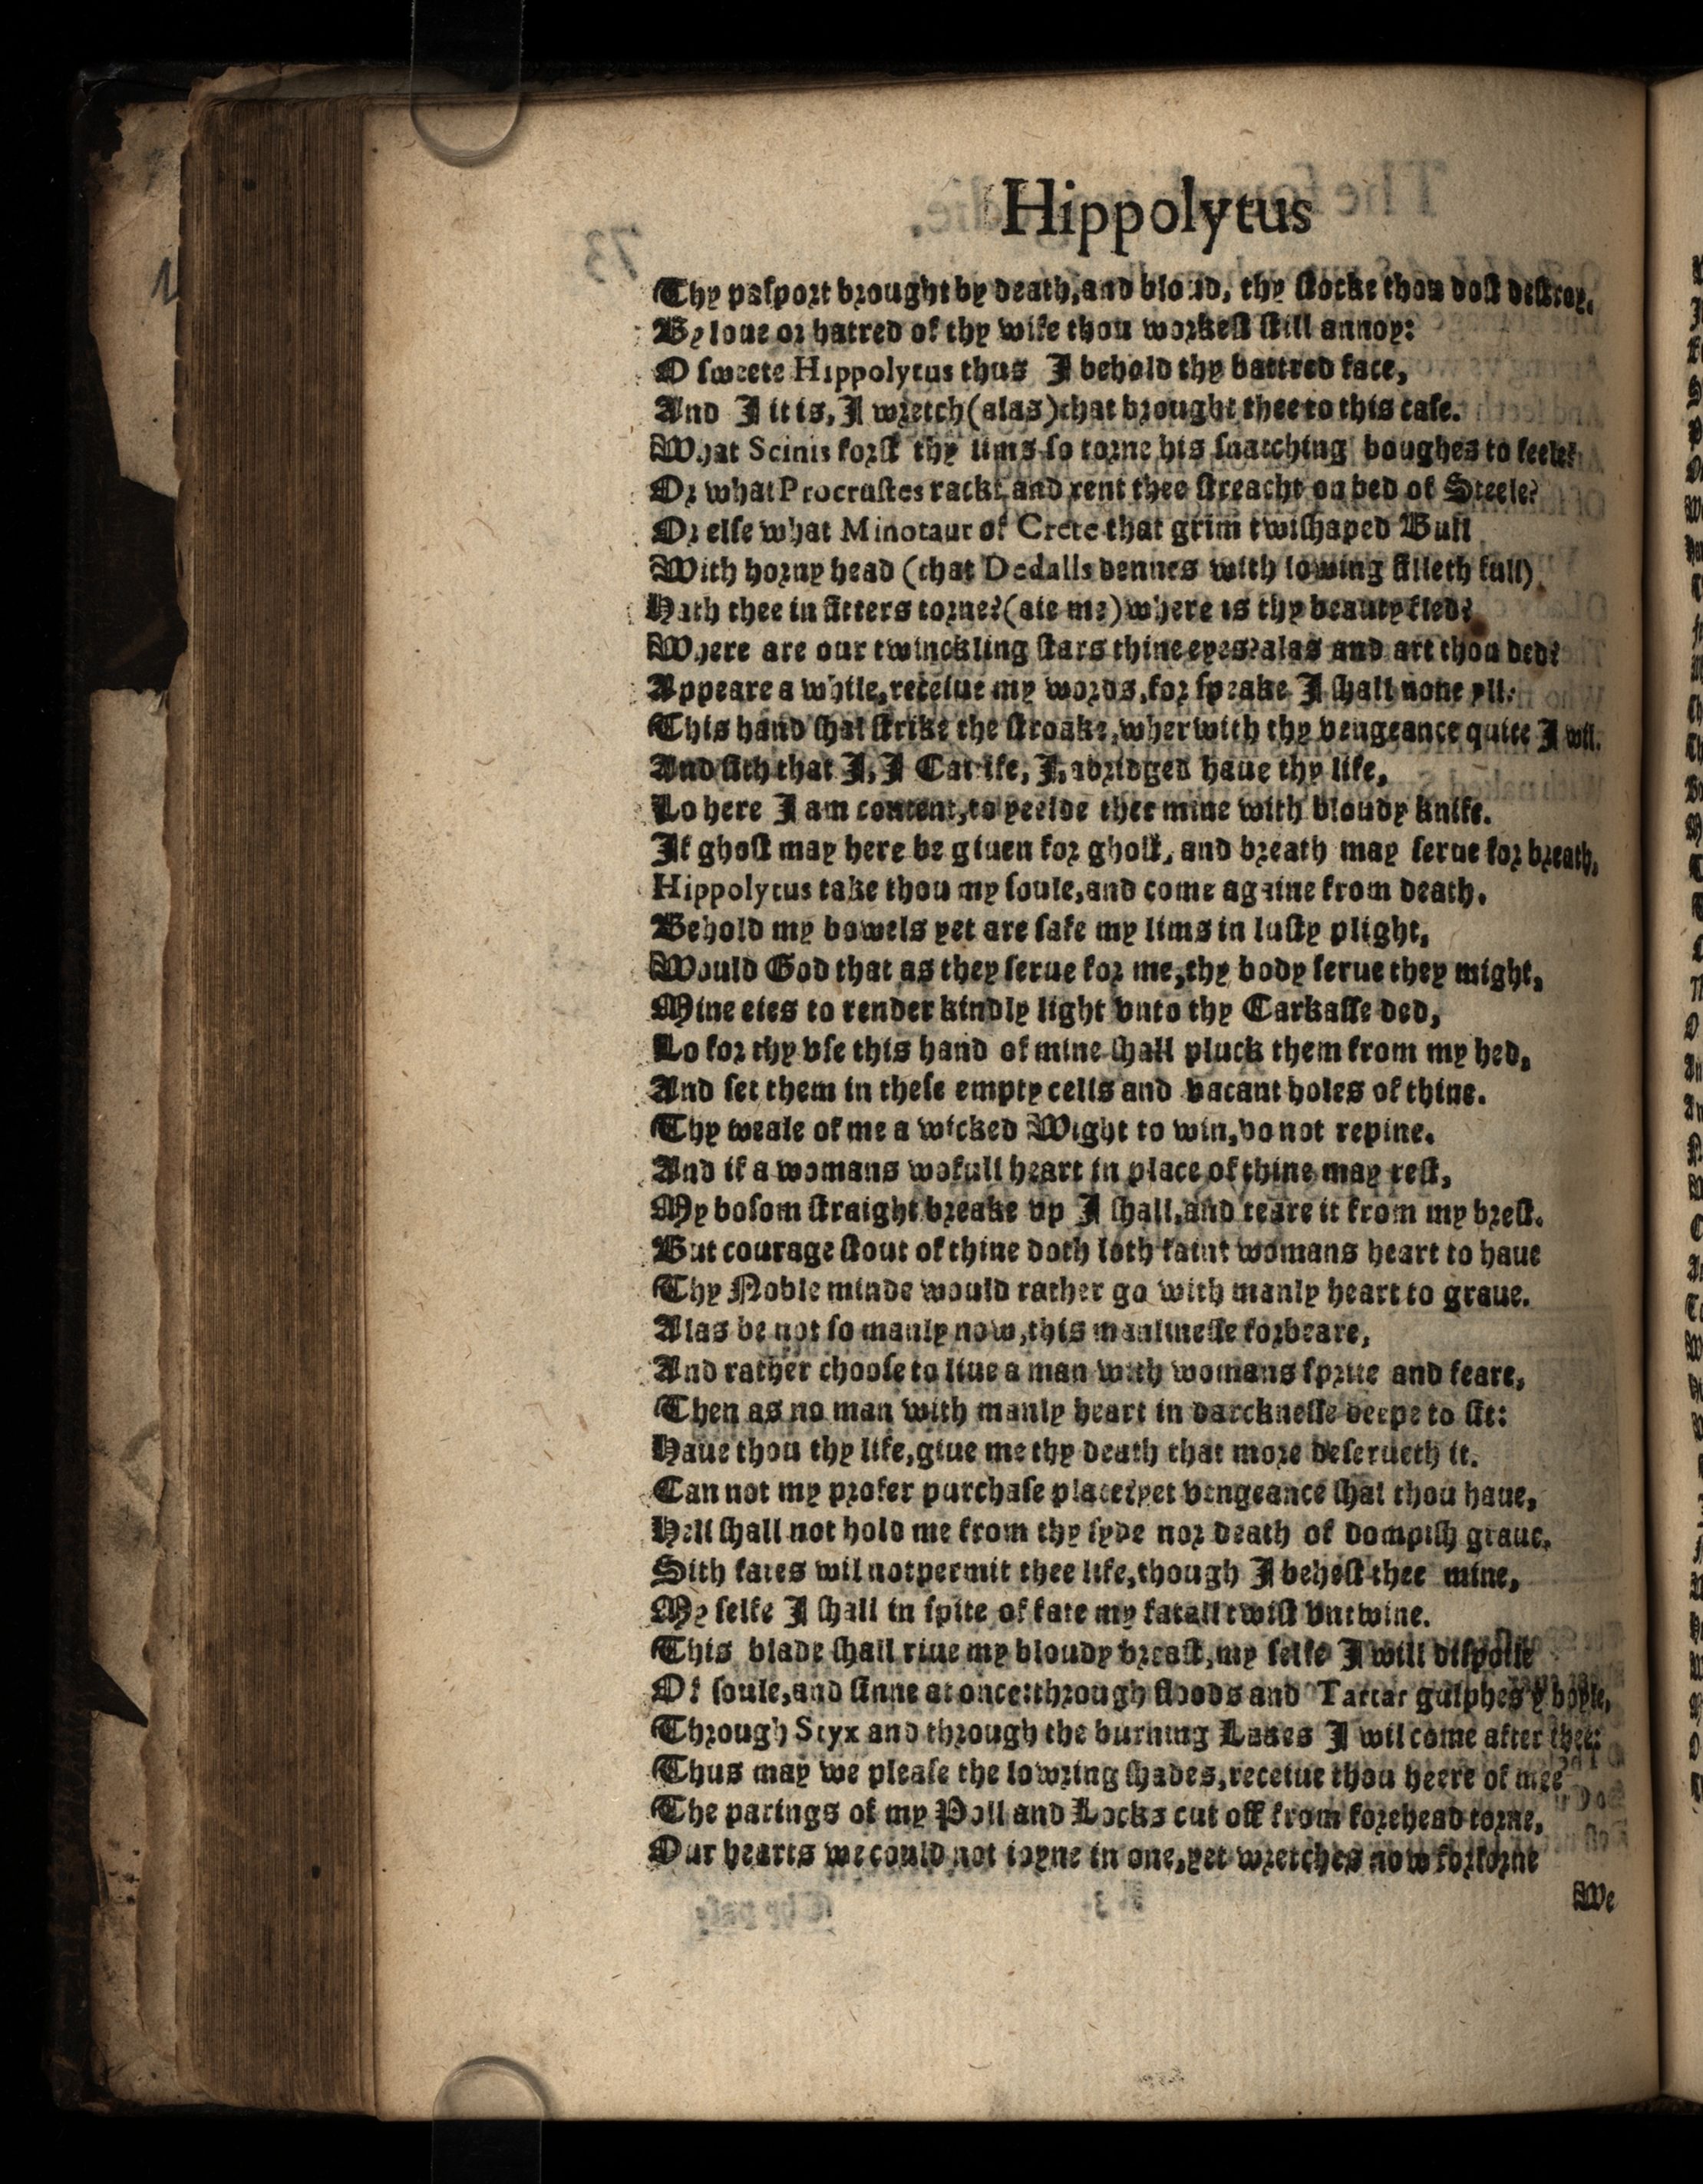 Hippolytus
Thy pasport brought by death, and bloud, thy stocke thou dost destroy,
By loue or hatred of thy wife thou workest still annoy:
O sweete Hippolytus thus I behold thy battred face,
And I it is, I wretch (alas) that brought thee to this case.
What Scinis forst thy lims so torne his snatching boughes to feele?
Or what Procrustes rackt, and rent thee streacht on bed of Steele?
Or else what Minotaur of Crete that grim twishaped Bull
With horny head (that Dedalls dennes with lowing filleth full)
Hath thee in fitters torne? (aie me) where is thy beauty fled?
Where are our twinckling stars thine eyes? alas and art thou ded?
Appeare a while, receiue my words, for speake I shall none yll:
This hand shal strike the stroake, wherwith thy vengeance quite I wil.
And sith that I, I Catife, I, abridged haue thy life,
Lo here I am content, to yeelde thee mine with bloudy knife.
If ghost may here be giuen for ghost, and breath may serue for breath,
Hippolytus take thou my soule, and come againe from death.
Behold my bowels yet are safe my lims in lusty plight,
Would God that as they serue for me, thy body serue they might,
Mine eies to render kindly light vnto thy Carkasse ded,
Lo for thy vse this hand of mine shall pluck them from my hed,
And set them in these empty cells and vacant holes of thine.
Thy weale of me a wicked Wight to win, do not repine.
And if a womans wofull heart in place of thine may rest,
My bosom straight breake vp I shall, and teare it from my brest.
But courage stout of thine doth loth faint womans heart to haue
Thy Noble minde would rather go with manly heart to graue.
Alas be not so manly now, this manlinesse forbeare,
And rather choose to liue a man with womans sprite and feare,
Then as no man with manly heart in darcknesse deepe to sit:
Haue thou thy life, giue me thy death that more deserueth it.
Can not my profer purchase place? yet vengeance shal thou haue,
Hell shall not hold me from thy syde nor death of dompish graue,
Sith fates wil not permit thee life, though I behest thee mine,
My selfe I shall in spite of fate my fatall twist vntwine.
This blade shall riue my bloudy breast, my selfe I will dispoile
Of soule, and sinne at once: through floods and Tartar gulphes yͭ boyle,
Through Styx and through the burning Lakes I wil come after thee:
Thus may we please the lowring shades, receiue thou heere of mee
The parings of my Poll and Locks cut off from forehead torne,
Our hearts we could not ioyne in one, yet wretches now forlorne
We